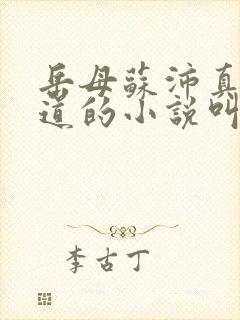 岳母蘇沛真
道的小說叫
李古丁